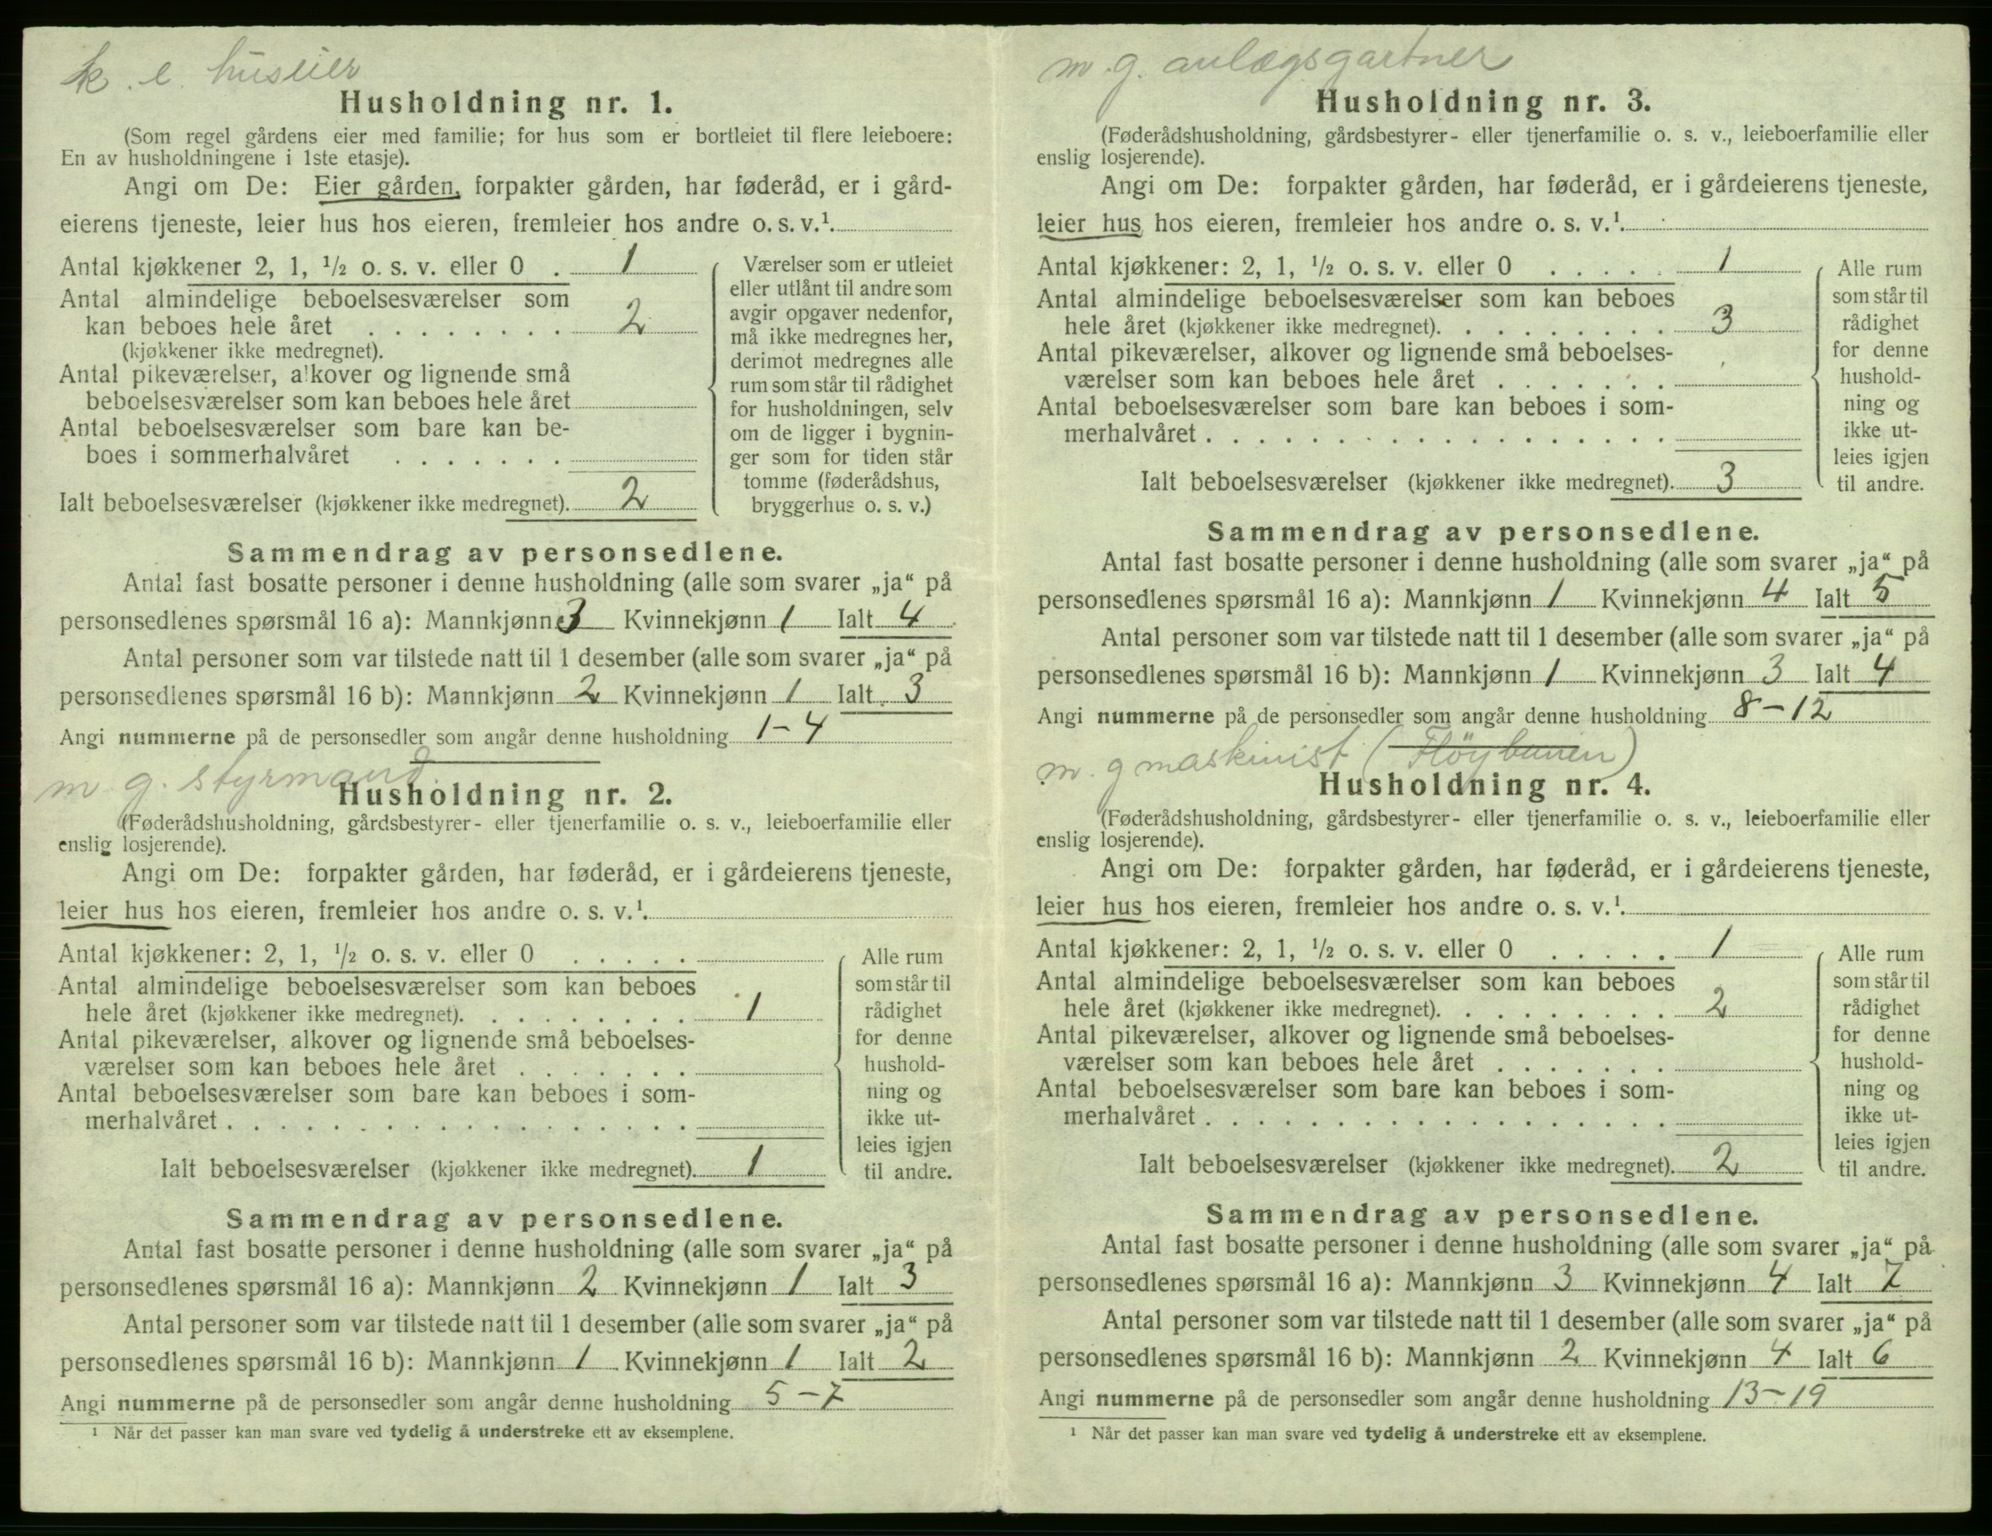 k. e. huseier
Husholdning nr. 1.
(Som regel gårdens eier med familie; for hus som er bortleiet til flere leieboere:
En av husholdningene i 1ste etasje).
Angi om De: Eier gården, forpakter gården, har føderåd, er i gård-
eierens tjeneste, leier hus hos eieren, fremleier hos andre o. s. v.¹
Antal kjøkkener 2, 1, ½ o. s. v. eller 0 . 1
Antal almindelige beboelsesværelser som
kan beboes hele året . . . . . . . . 2
(kjøkkener ikke medregnet).
Antal pikeværelser, alkover og lignende små
beboelsesværelser som kan beboes hele året
Antal beboelsesværelser som bare kan be-
boes i sommerhalvåret . . . . . . .
Ialt beboelsesværelser (kjøkkener ikke medregnet). 2
Værelser som er utleiet
eller utlånt til andre som
avgir opgaver nedenfor,
må ikke medregnes her,
derimot medregnes alle
rum som står til rådighet
for husholdningen, selv
om de ligger i bygnin-
ger som for tiden står
tomme (føderådshus,
bryggerhus o. s. v.)
Sammendrag av personsedlene.
Antal fast bosatte personer i denne husholdning (alle som svarer „ja“ på
personsedlenes spørsmål 16 a): Mannkjønn 3 Kvinnekjønn 1 Ialt 4
Antal personer som var tilstede natt til 1 desember (alle som svarer „ja“ på
personsedlenes spørsmål 16 b): Mannkjønn 2 Kvinnekjønn 1 Ialt 3
Angi nummerne på de personsedler som angår denne husholdning 1-4
m. g. styrmand.
Husholdning nr. 2.
(Føderådshusholdning, gårdsbestyrer- eller tjenerfamilie o. s. v., leieboerfamilie eller
enslig losjerende).
Angi om De: forpakter gården, har føderåd, er i gårdeierens tjeneste,
leier hus hos eieren, fremleier hos andre o. s. v.¹
Antal kjøkkener: 2, 1, ½ o. s. v. eller 0 . . . . .
Antal almindelige beboelsesværelser som kan beboes
hele året (kjøkkener ikke medregnet). . . . . . . . . 1
Antal pikeværelser, alkover og lignende små beboelses-
værelser som kan beboes hele året . . . . . . .
Antal beboelsesværelser som bare kan beboes i som-
merhalvåret . . . . . . . . . . . . . . . . . .
Ialt beboelsesværelser (kjøkkener ikke medregnet). 1
Alle rum
som står til
rådighet
for denne
hushold-
ning og
ikke ut-
leies igjen
til andre.
Sammendrag av personsedlene.
Antal fast bosatte personer i denne husholdning (alle som svarer „ja“ på
personsedlenes spørsmål 16 a): Mannkjønn 2 Kvinnekjønn 1 Ialt 3
Antal personer som var tilstede natt til 1 desember (alle som svarer „ja“ på
personsedlenes spørsmål 16 b): Mannkjønn 1 Kvinnekjønn 1 Ialt 2
Angi nummerne på de personsedler som angår denne husholdning 5-7
¹ Når det passer kan man svare ved tydelig å understreke ett av eksemplene.
m. g. anlægsgartner
Husholdning nr. 3.
(Føderådshusholdning, gårdsbestyrer- eller tjenerfamilie o. s. v., leieboerfamilie eller
enslig losjerende).
Angi om De: forpakter gården, har føderåd, er i gårdeierens tjeneste,
leier hus hos eieren, fremleier hos andre o. s. v.¹
Antal kjøkkener: 2, 1, ½ o. s. v. eller 0 . . . . . 1
Antal almindelige beboelsesværelser som kan beboes
hele året (kjøkkener ikke medregnet). . . . . . . . . 3
Antal pikeværelser, alkover og lignende små beboelses-
værelser som kan beboes hele året . . . . . . .
Antal beboelsesværelser som bare kan beboes i som-
merhalvåret . . . . . . . . . . . . . . . . . .
Ialt beboelsesværelser (kjøkkener ikke medregnet). 3
Alle rum
som står til
rådighet
for denne
hushold-
ning og
ikke ut-
leies igjen
til andre.
Sammendrag av personsedlene.
Antal fast bosatte personer i denne husholdning (alle som svarer „ja“ på
personsedlenes spørsmål 16 a): Mannkjønn 1 Kvinnekjønn 4 Ialt 5
Antal personer som var tilstede natt til 1 desember (alle som svarer „ja“ på
personsedlenes spørsmål 16 b): Mannkjønn 1 Kvinnekjønn 3 Ialt 4
Angi nummerne på de personsedler som angår denne husholdning 8-12
m. g maskinist (Fløybanen)
Husholdning nr. 4.
(Føderådshusholdning, gårdsbestyrer- eller tjenerfamilie o. s. v., leieboerfamilie eller
enslig losjerende).
Angi om De: forpakter gården, har føderåd, er i gårdeierens tjeneste,
leier hus hos eieren, fremleier hos andre o. s. v.¹
Antal kjøkkener: 2, 1, ½ o. s. v. eller 0 . . . . . 1
Antal almindelige beboelsesværelser som kan beboes
hele året (kjøkkener ikke medregnet). . . . . . . . . 2
Antal pikeværelser, alkover og lignende små beboelses-
værelser som kan beboes hele året . . . . . . .
Antal beboelsesværelser som bare kan beboes i som-
merhalvåret . . . . . . . . . . . . . . . . . .
Ialt beboelsesværelser (kjøkkener ikke medregnet). 2
Alle rum
som står til
rådighet
for denne
hushold-
ning og
ikke ut-
leies igjen
til andre.
Sammendrag av personsedlene.
Antal fast bosatte personer i denne husholdning (alle som svarer „ja“ på
personsedlenes spørsmål 16 a): Mannkjønn 3 Kvinnekjønn 4 Ialt 7
Antal personer som var tilstede natt til 1 desember (alle som svarer „ja“ på
personsedlenes spørsmål 16 b): Mannkjønn 2 Kvinnekjønn 4 Ialt 6
Angi nummerne på de personsedler som angår denne husholdning 13-19
¹ Når det passer kan man svare ved tydelig å understreke ett av eksemplene.